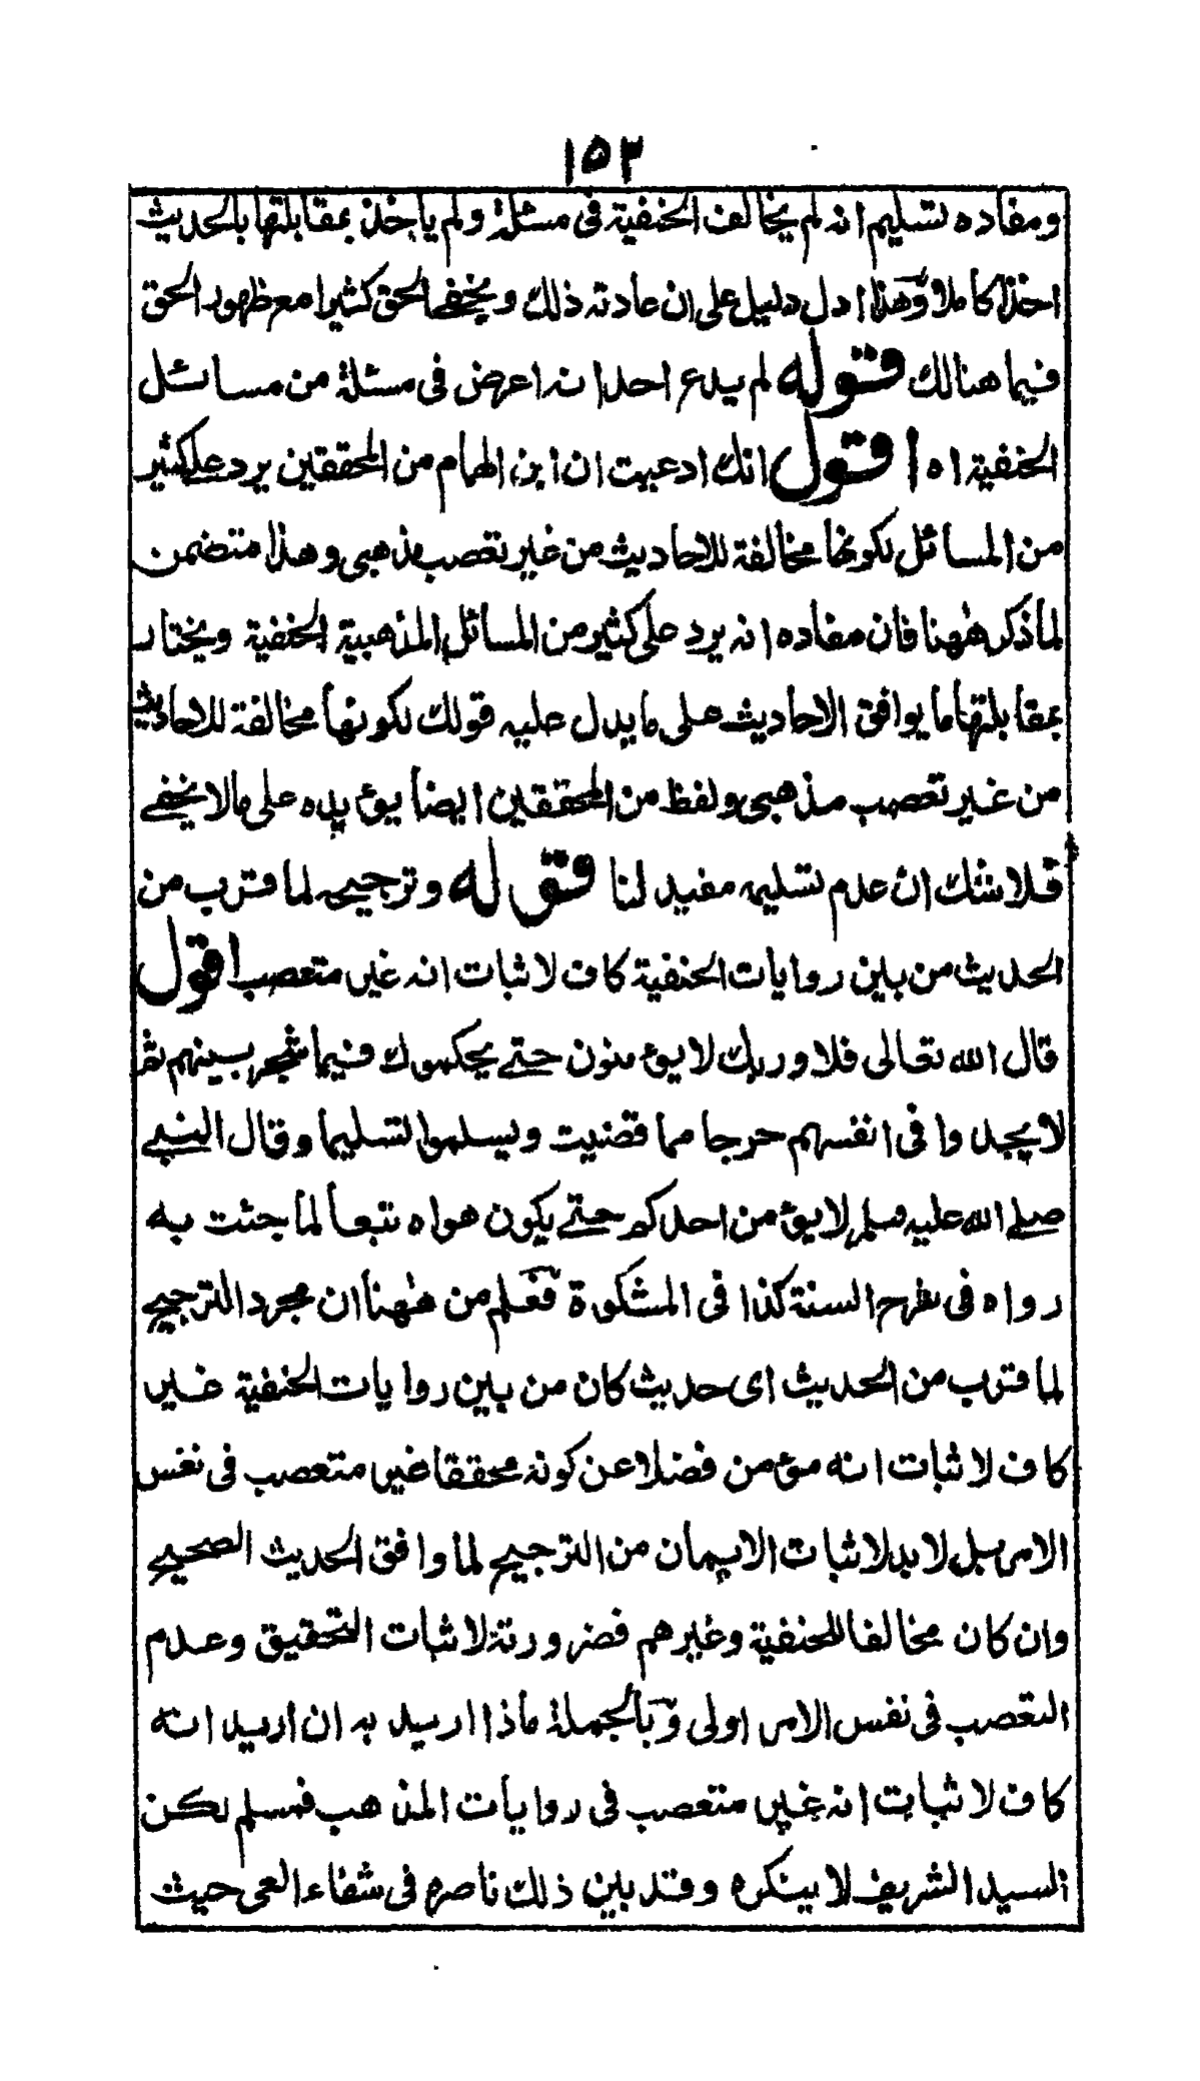 ١٥٣
ومفاده تسليم انه لم يخالف الحنفية فى مسئلة ولم ياخذ بمقابلتها بالحديث
اخذا كاملا وهذا ادل دليل على ان عادته ذلك ويخفے الحق كثيرا مع ظهور الحق
فيما هنالك قوله لم يدع احد انه اعرض فى مسئلة من مسائل
الحنفية اه اقول انك ادعيت ان ابن الهمام من المحققين يرد علے كثير
من المسائل لكونها مخالفة للاحاديث من غير تعصب مذهبى وهذا متضمن
لما ذكر ههنا فان مفاده انه يرد على كثير من المسائل المذهبية الحنفية ويختار
بمقابلتها ما يوافق الاحاديث على ما يدل عليه قولك لكونها مخالفة للاحاديث
من غير تعصب مذهبى ولفظ من المحققين ايضا يؤيده على ما لا يخفے
فلا شك ان عدم تسليمه مفيد لنا قوله وترجيحه لما قرب من
الحديث من بين روايات الحنفية كاف لاثبات انه غير متعصب اقول
قال الله تعالى فلا وربك لا يؤمنون حتے يحكموك فيما شجر بينهم ثم
لا يجدوا فى انفسهم حرجا مما قضيت ويسلموا تسليما وقال النبے
صلے الله عليه وسلم لا يؤمن احدكم حتے يكون هواه تبعا لما جئت به
رواه فى شرح السنة كذا فى المشكوة فعلم من ههنا ان مجرد الترجيح
لما قرب من الحديث اى حديث كان من بين روايات الحنفية غير
كاف لاثبات انه مؤمن فضلا عن كونه محققا غير متعصب فى نفس
الامر بل لا بد لاثبات الايمان من الترجيح لما وافق الحديث الصحيح
وان كان مخالفا للحنفية وغيرهم فضرورته لاثبات التحقيق وعدم
التعصب فى نفس الامر اولى وبالجملة ماذا اريد به ان اريد انه
كاف لاثبات انه غير متعصب فى روايات المذهب فمسلم لكن
السيد الشريف لا ينكره وقد بين ذلك ناصره فى شفاء العى حيث